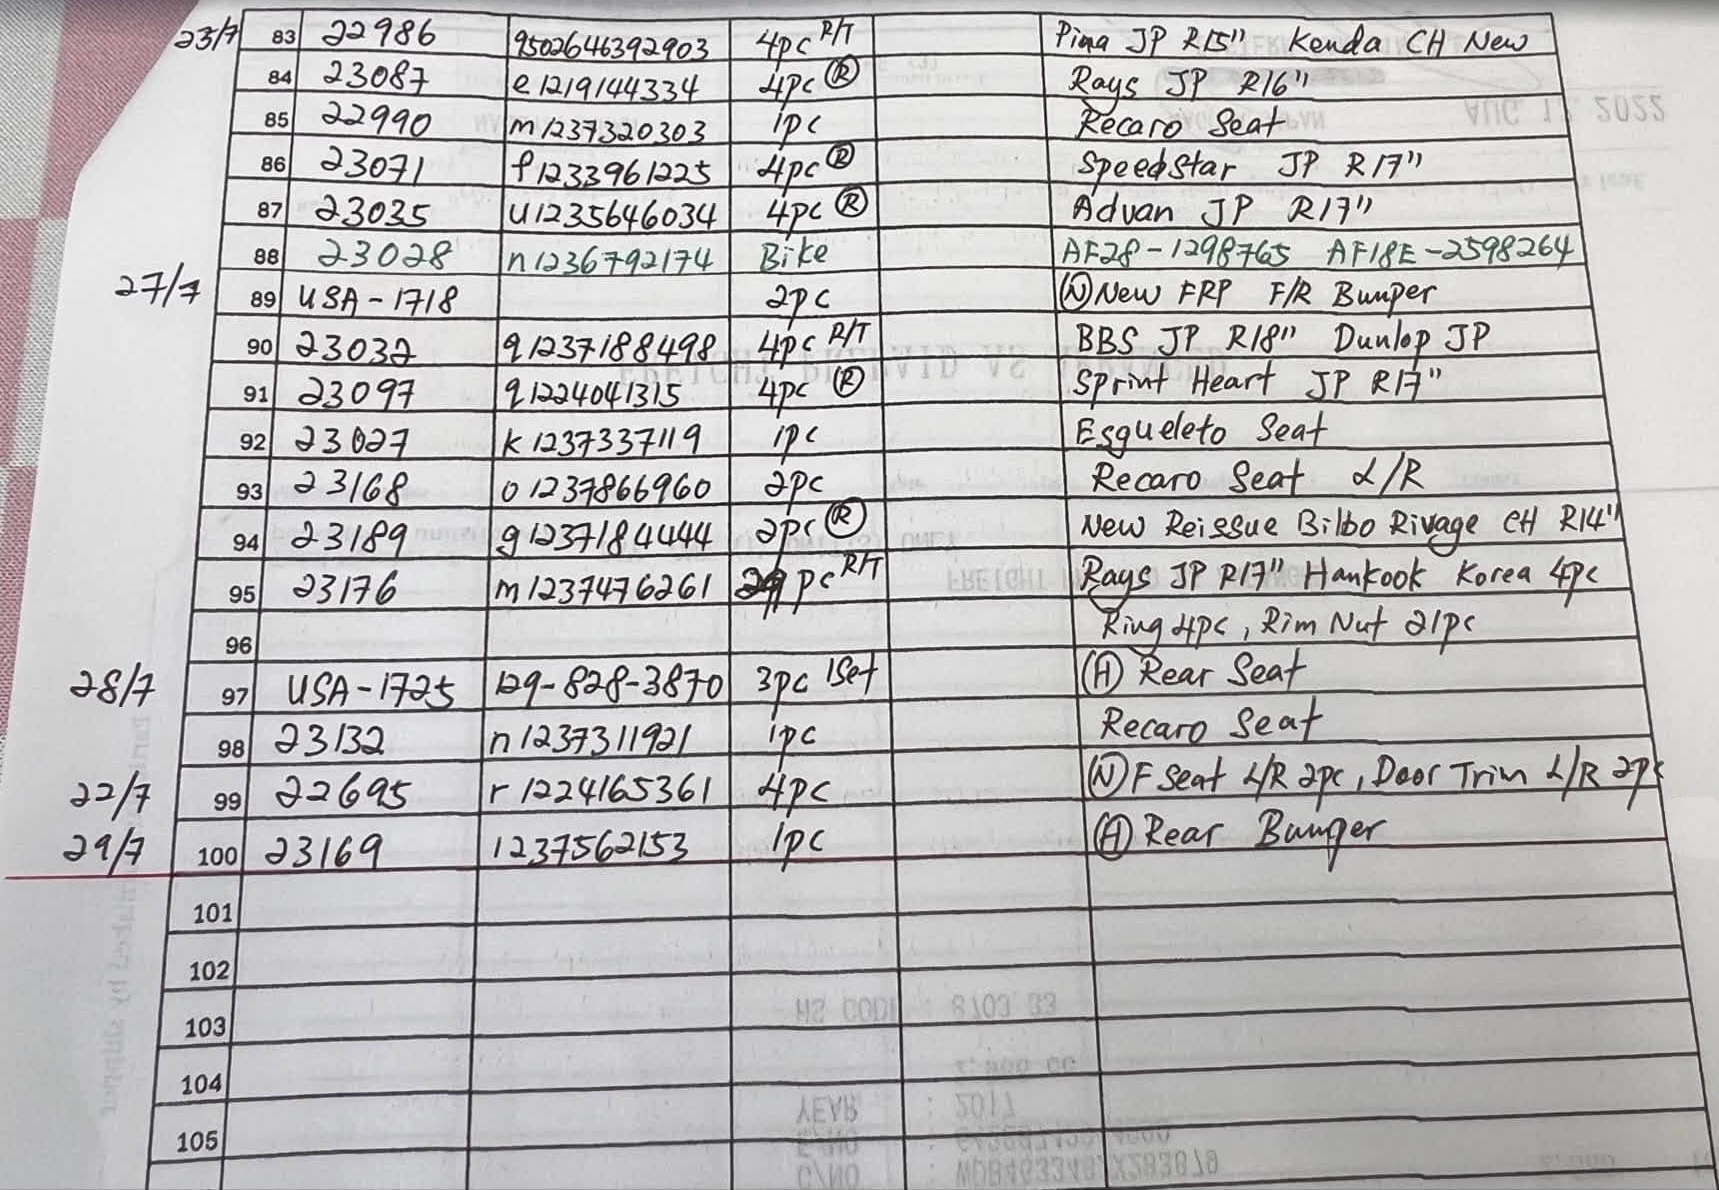 23/7 83 22986 9502646392903 4pc R/T Pina JP R15" Kenda CH New
84 23087 e1219144334 4pc Ⓡ Rays JP R16"
85 22990 m1237320303 1pc Recaro Seat
86 23071 f1233961225 4pc Ⓡ SpeedStar JP R17"
87 23035 u1235646034 4pc Ⓡ Advan JP R17"
88 23028 n1236792174 Bike AF28-1298765 AF18E-2598264
27/7 89 USA-1718 2pc Ⓝ New FRP F/R Bumper
90 23032 q1237188498 4pc R/T BBS JP R18" Dunlop JP
91 23097 q1224041315 4pc Ⓡ Sprint Heart JP R17"
92 23027 k1237337119 1pc Esqueleto Seat
93 23168 o1237866960 2pc Recaro Seat L/R
94 23189 g1237184444 2pc Ⓡ New Reissue Bilbo Rivage CH R14"
95 23176 m1237476261 29pc R/T Rays JP R17" Hankook Korea 4pc
96 Ring 4pc, Rim Nut 21pc
28/7 97 USA-1725 129-828-3870 3pc 1Set Ⓗ Rear Seat
98 23132 n1237311921 1pc Recaro Seat
22/7 99 22695 r1224165361 4pc Ⓝ F Seat L/R 2pc, Door Trim L/R 2pc
29/7 100 23169 1237562153 1pc Ⓗ Rear Bumper
101
102
103
104
105